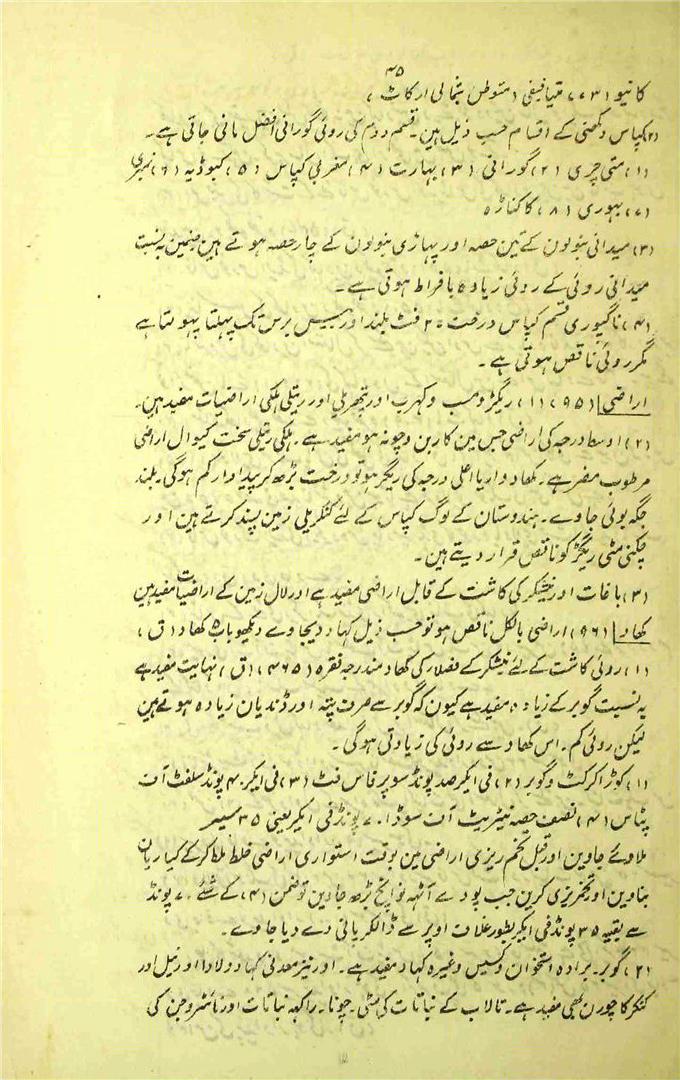 ۴۵
کانپو (۳۷)، متیافیفی (متوطن بنجالی ارکاٹ)،
(۲) کپاس دکھنی کے اقسام حسب ذیل ہین۔ قسم دوم کی روئی گورانی افضل مانی جاتی ہے۔
(۱) متی چری (۲) گورانی (۳) بہارت (۴) مغربی کپاس (۵) کبوڈیہ (۶) نمبری
(۷) بہوری (۸) کاکناڑہ
(۳) میدانی بنولون کے تین حصہ اور پہاڑی بنولون کے چار حصہ ہوتے ہین جنمین بہ نسبت
میدانی روئی کے روئی زیادہ بافراط ہوتی ہے۔
(۴) ناگپوری قسم کپاس درخت ۲۰ فٹ بلند اور بیس برس تک پہلتا پہولتا ہے
مگر روئی ناقص ہوتی ہے۔
اراضی (۹۵) (۱) ریگڑ ومب وکہرب اور پتھریلی اور ریتلی ہلکی اراضیات مفید ہین۔
(۲) اوسط درجہ کی اراضی جس مین کاربن وچونہ ہو مفید ہے۔ ہلکی ریتلی سخت کیوال اراضی
مرطوب مضر ہے۔ کھاد دار یا اعلی درجہ کی ریگر ہو تو درخت بڑھ کر پیداوار کم ہوگی۔ بلند
جگہ بوئی جاوے۔ ہندوستان کے لوگ کپاس کے لئے کنکریلی زمین پسند کرتے ہین اور
چکنی مٹی ریگڑ کو ناقص قرار دیتے ہین۔
(۳) باغات اور نیشکر کی کاشت کے قابل اراضی مفید ہے اور لال زمین کے اراضیات مفید ہین
کھاد (۹۶) اراضی بالکل ناقص ہو تو حسب ذیل کہاد دیجاوے دیکھو باب ۵ کھاد (ق)،
(۱) روئی کاشت کے لئے نیشکر کے فضلہ کی کھاد مندرجہ فقرہ (۴۶۵) (ق) نہایت مفید ہے
بہ نسبت گوبر کے زیادہ مفید ہے کیون کہ گوبر سے صرف پتہ اور ڈنڈیان زیادہ ہوتے ہین
لیکن روئی کم۔ اس کھاد سے روئی کی زیادتی ہوگی۔
(۱) کوڑا کرکٹ وگوبر (۲) فی ایکر صد پونڈ سوپر فاس فٹ (۳) فی ایکر ۴۰ پونڈ سلفٹ آف
پٹاس (۴) نصف حصہ نیٹریٹ آف سوڈا ۷۰ پونڈ فی ایکر یعنی ۳۵ سیر
ملاوئے جاوین اور قبل تخم ریزی اراضی مین بوقت استواری اراضی خلط ملط کر کے کیاریان
بناوین اور تخمریزی کرین جب پودے آٹہہ نو انچ بڑھ جاوین تو ضمن (۴) کے شئے ۷۰ پونڈ
سے بقیہ ۳۵ پونڈ فی ایکر بطور غلاف اوپر سے ڈالکر پانی دے دیا جاوے۔
(۲) گوبر۔ برادہ استخوان وکسیس وغیرہ کہاد مفید ہے۔ اور نیز معدنی کہاد ولاد اور نیل اور
کنکر کا چورن بھی مفید ہے۔ تالاب کے نباتات کی مٹی۔ چونا۔ راکہہ نباتات اور نائٹروجن کی